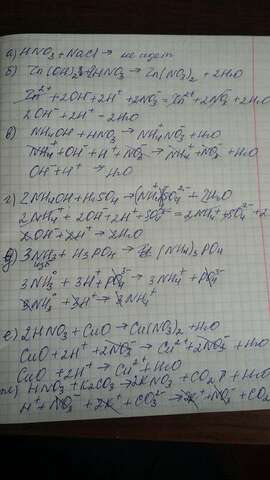 а) HNO₃ + NaCl → не идет
б) Zn(OH)₂ + 2HNO₃ → Zn(NO₃)₂ + 2H₂O
Zn²⁺ + 2OH⁻ + 2H⁺ + 2NO₃⁻ = Zn²⁺ + 2NO₃⁻ + 2H₂O
2OH⁻ + 2H⁺ → 2H₂O
в) NH₄OH + HNO₃ → NH₄NO₃ + H₂O
NH₄⁺ + OH⁻ + H⁺ + NO₃⁻ → NH₄⁺ + NO₃⁻ + H₂O
OH⁻ + H⁺ → H₂O
г) 2NH₄OH + H₂SO₄ → (NH₄⁺)₂SO₄²⁻ + 2H₂O
2NH₄⁺ + 2OH⁻ + 2H⁺ + SO₄²⁻ = 2NH₄⁺ + SO₄²⁻ + 2
2OH⁻ + 2H⁺ → 2H₂O
д) 3NH₃ + H₃PO₄ → (NH₄)₃PO₄
3NH₃⁰ + 3H⁺ + PO₄³⁻ → 3NH₄⁺ + PO₄³⁻
3NH₃⁰ + 3H⁺ → 3NH₄⁺
е) 2HNO₃ + CuO → Cu(NO₃)₂ + H₂O
CuO + 2H⁺ + 2NO₃⁻ → Cu²⁺ + 2NO₃⁻ + H₂O
CuO + 2H⁺ → Cu²⁺ + H₂O
ж) HNO₃ + K₂CO₃ → 2KNO₃ + CO₂↑ + H₂O
H⁺ + NO₃⁻ + 2K⁺ + CO₃²⁻ → 2K⁺ + NO₃⁻ + CO₂